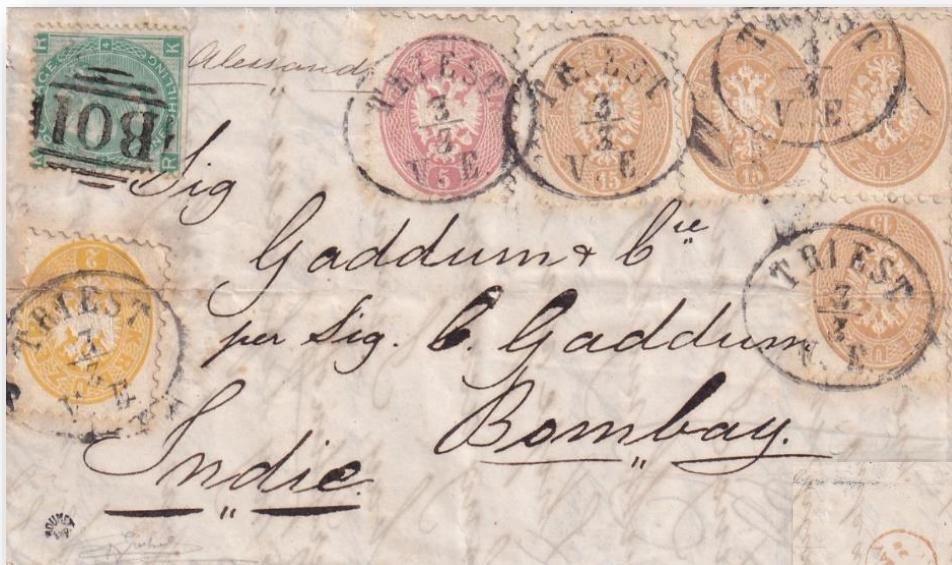 Alessand
B01
TRIEST
3/3
V. E
5
TRIEST
3/3
V. E
15
TRIEST
3/3
V. E
15
15
TRIEST
3/3
V. E
2
TRIEST
3/3
V. E
15
Sig
Gaddum & Cie
per Sig. C. Gaddum
Bombay.
Indie